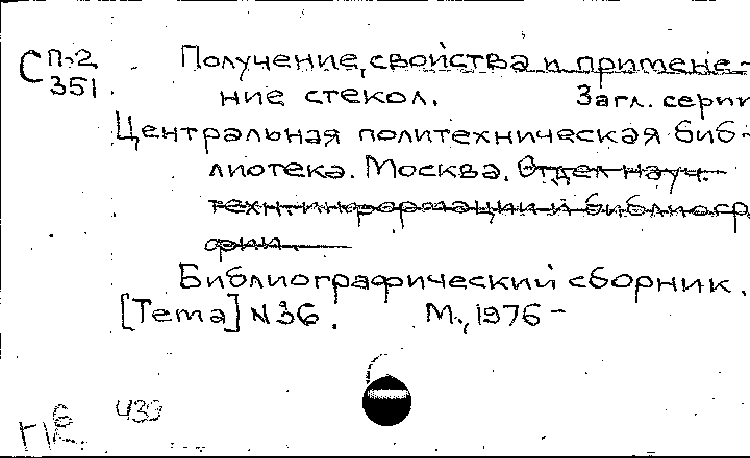 С П-2
351
Получение, свойства и примене-
ние стекол. Загл. серии
Центральная политехническая биб-
лиотека. Москва. Отдел науч.-
техн. информации и библиогра-
фии.
Библиографический сборник.
[Тема] N 36. М., 1976-